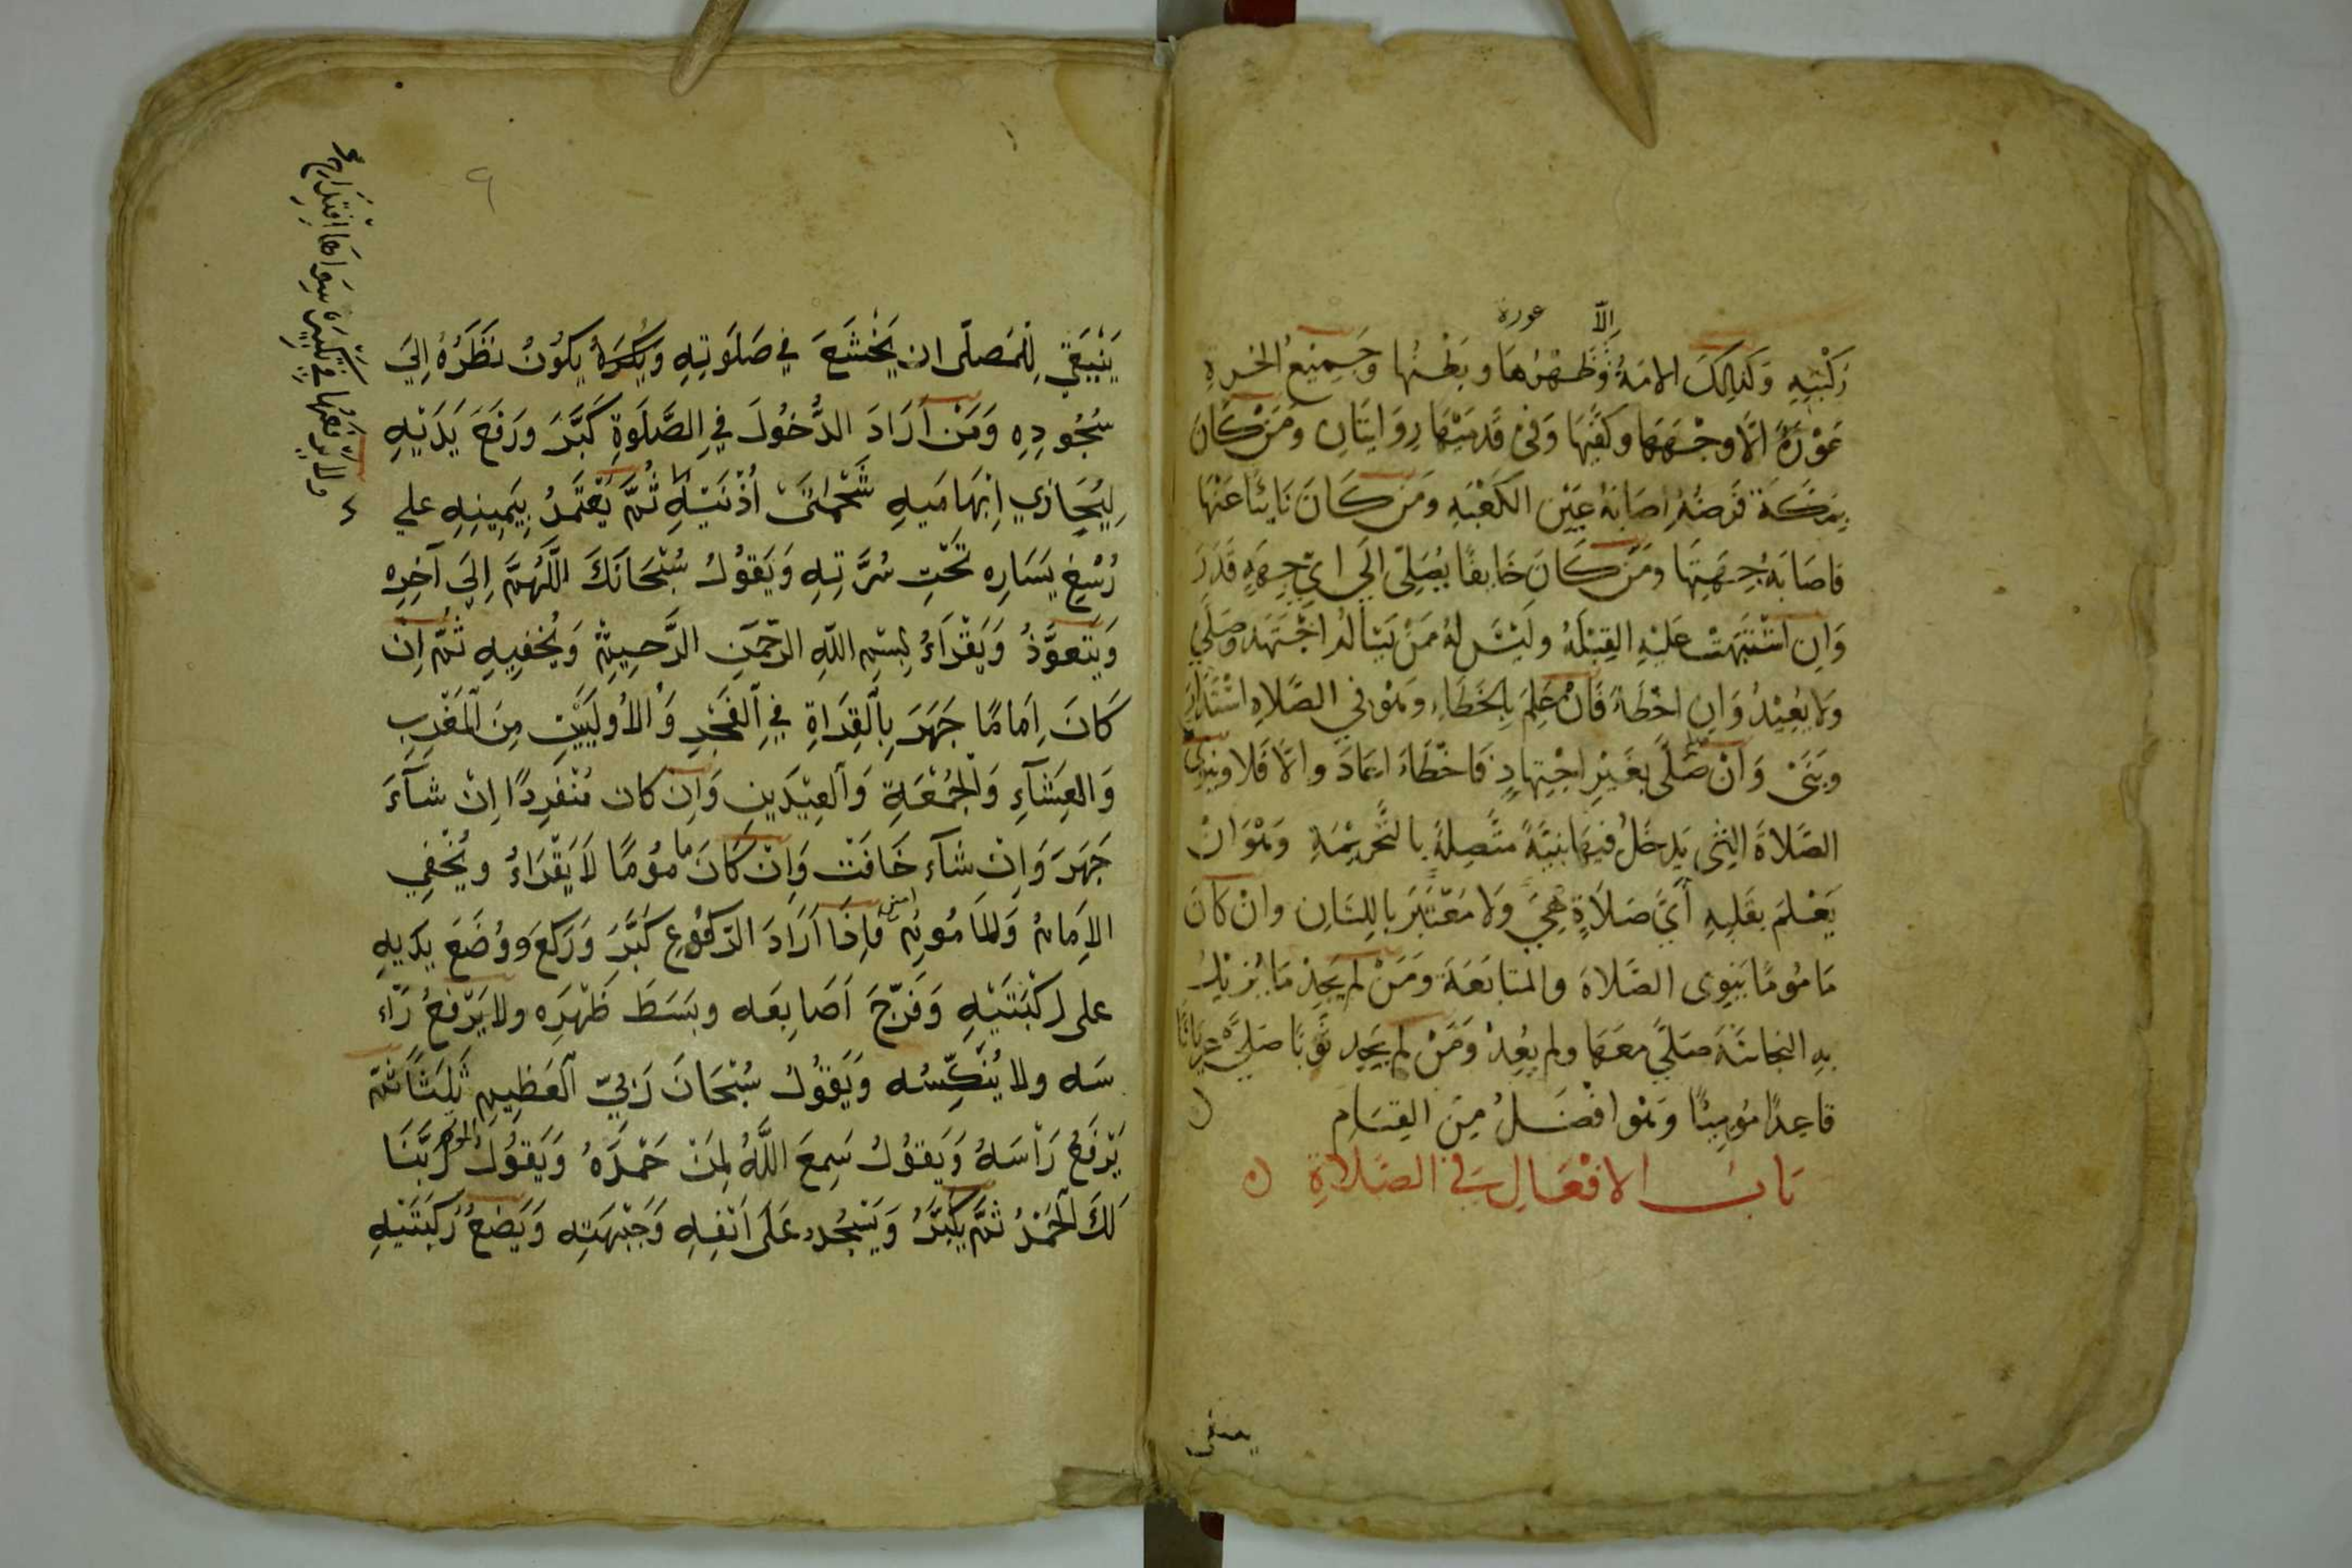 إلّا عورة
رُكْبَتِهِ وَكَذلِكَ الامَةُ وَظَهْرُهَا وبَطْنُها وجَمِيْعُ الحُرةِ
عَوْرَةٌ الّا وجْهَهَا وكَفَّيْهَا وَفىْ قَدَمَيْهَا رِوَايَتَانِ ومَنْ كَانَ
بِمَكَّةَ فَرْضُهُ اصَابَةُ عَيْنِ الكَعْبَهِ ومَنْ كَانَ نَائيًا عَنْهَا
فاصَابَهُ جِهَتِهَا ومَنْ كَانَ خَايفًا يُصَلِّى الَي ايّ جِهَةٍ قَدَرَ
وَاِن اشْتَبَهَتْ عَلَيْهِ القِبْلَهُ ولَيْسَ لهُ مَنْ يَسْالُهُ اجْتَهَدَ وصَلّي
ولا يُعِيْدُ وَاِن اخْطَاءَ فَانْ عَلِمَ بِالخَطَاءِ وَهْوَ في الصَّلاهِ اسْتَدَارَ
وبَنَىْ وَانْ صَلَّى بِغَيْرِ اجْتِهادٍ فَاخْطَاءَ اعَادَ والّا فَلا وينْوِى
الصَّلاةَ الّتِى يَدخُلُ فيهَا بنيَّةً متَّصِلةً بالتَّحريْمَةِ وَهْوَ انْ
يَعْلمَ بقَلبِهِ أَيَّ صَلاةٍ هِيَ وَلا مُعْتَبَرَ بالِلسَانِ وانْ كَانَ
مَامُومًا يَنوِى الصَّلاةَ والمتابَعَةَ ومَنْ لم يَجِدْ مَا يُزِيْلُ
بهِ النجاسَةَ صَلَّي معَهَا ولم يعُِدْ وَمَنْ لم يَجِد ثَوْبًا صَلَّى عريَانًا
قاعِدًا مُومِيًا وَهْو افْضَلُ مِنَ القِيَام
بَابُ الافْعَالِ فِي الصَّلاةِ
ينبغى
يَنْبَغِي لِلْمُصلّى ان يَخْشَعَ في صَلَوتِهِ وَيَكُونُ نَظَرُهُ اِلَيَ
سُجُودِهِ وَمَنْ اَرَادَ الدُّخُولَ فِي الصَّلَوةِ كَبَّرَ وَرَفَعَ يَدَيْهِ
لِيُحَاذِي اِبْهَامَيهِ شَحْمَتَىْ اُذُنَيْهِ ثُمَّ يَعْتَمِدُ بِيَمِينِهِ علي
رُسْغِ يَسَارِه تَحْتَ سُرَّتِهِ وَيَقُولُ سُبْحَانَكَ اللّهُمَّ اِلَي آخِرِه
وَيَتَعوَّذُ وَيَقْرَاءُ بِسْمِ اللّهِ الرّحْمَنِ الرَّحِيمْ وَيُخْفِيهِ ثُمَّ اِنْ
كَانَ اِمَامًا جَهَرَ بِالْقِرَاةِ فِي الْفَجْرِ وَالْأُولَيَيْنِ مِنَ الْمَغْرِبِ
وَالعِشَآءِ وَالْجُمْعَةِ وَالْعِيْدَينِ وَاِنْ كان مُنْفَرِدًا اِنْ شَآءَ
جَهَرَ وَاِنْ شَآء خَافَتَ وَاِنْ كَانَ مامُومًا لاَ يَقْرَاءُ ويُخْفِي
الإَمَامُ وَالمَامُومُ امين فَاِذَا اَرَادَ الرّكُوعِ كَبَّرَ وَرَكَعَ وَوَضَعَ يَدَيهِ
على رُكْبَتَيْهِ وَفَرَّجَ اَصَابِعَه وبَسَطَ ظَهْرَه ولا يَرْفَعُ رَاْء
سَه ولا يُنَكِّسُه وَيَقُولُ سُبْحَانَ رَبِّيَ الْعَظِيمِ ثَلثًا ثُمّ
يَرْفَعُ رَاْسَهُ وَيَقُولُ سَمِعَ اللّهُ لِمَنْ حَمْدَهُ وَيَقُولُ المؤتم رَبَّنَا
لَكَ الْحَمْدُ ثُمَّ يُكَبِّرُ وَيَسْجُد عَلَى اَنْفِهِ وَجَبْهَتِه وَيَضَعُ رُكْبَتَيْهِ
ولا يرفعهما في تكبيرة سواها
٩